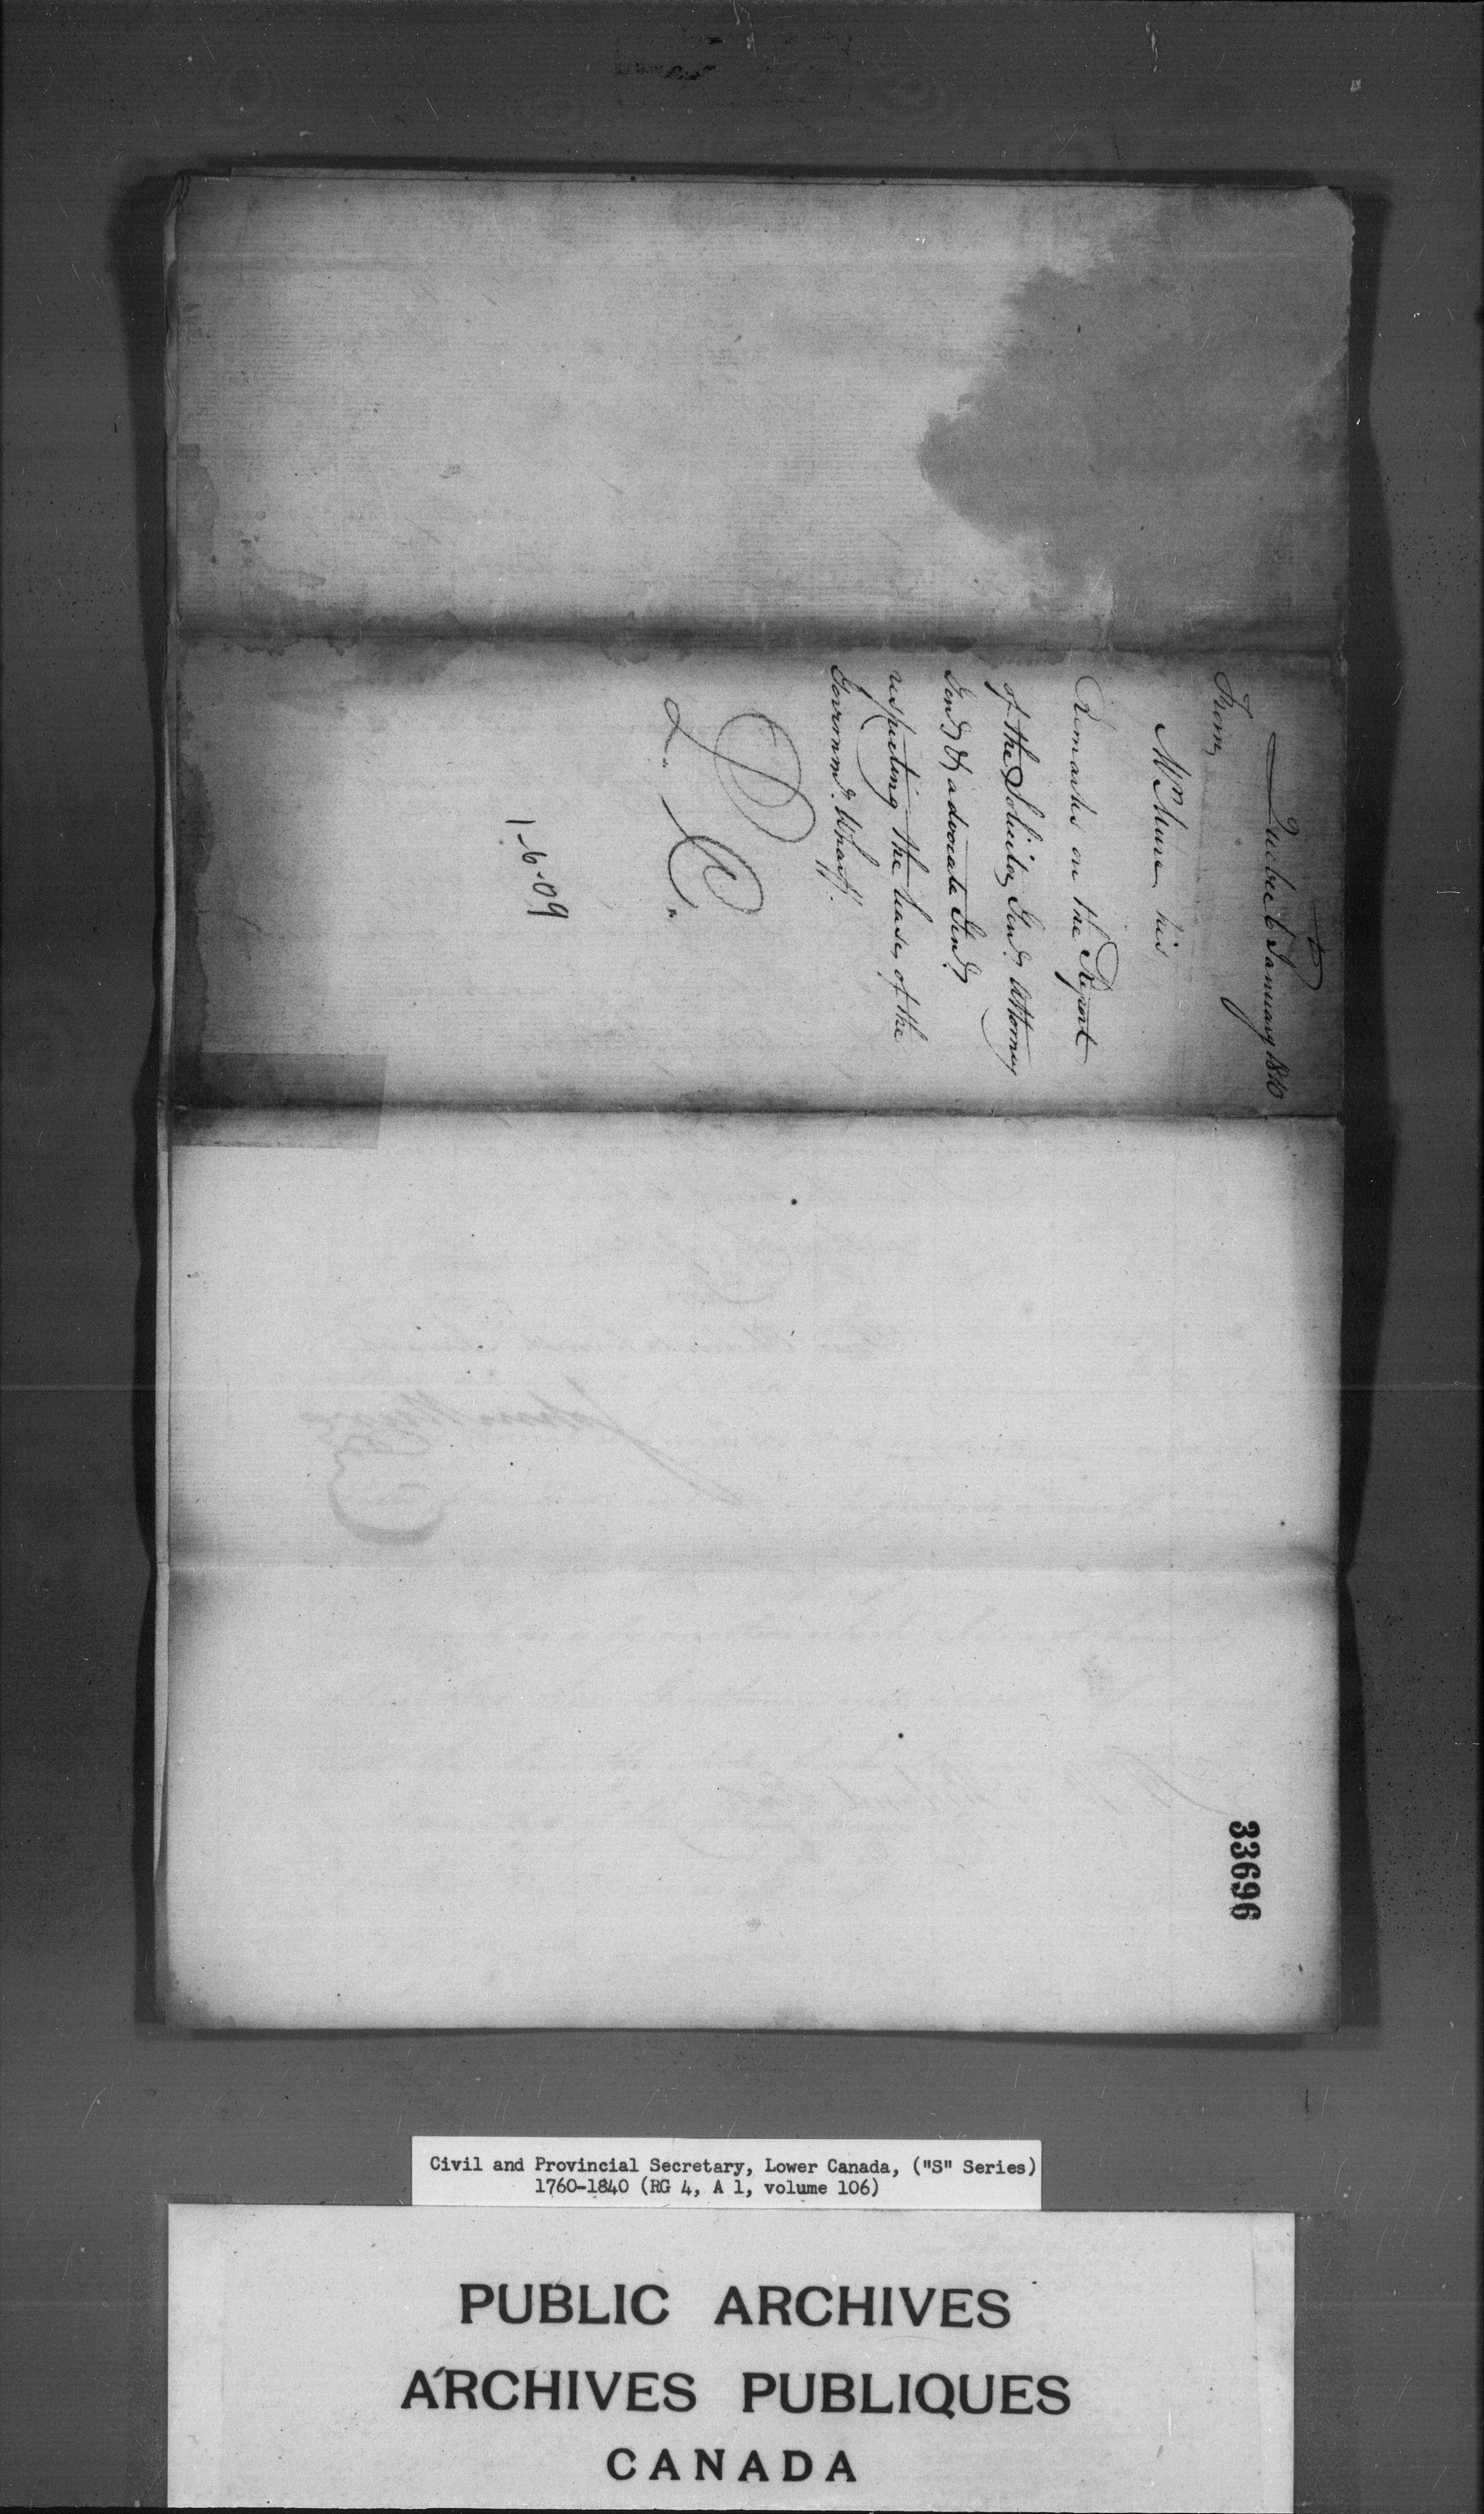 Quebec 6 January 1810
From
Mr. Mure his
Remarks on the Report
of the Solicitor Genl. Attorney
Genl. & advocate Genl.
respecting the lease of the
Governmt. Wharf.
1-6-09
33696
Civil and Provincial Secretary, Lower Canada, ("S" Series)
1760-1840 (RG 4, A 1, volume 106)
PUBLIC ARCHIVES
ARCHIVES PUBLIQUES
CANADA